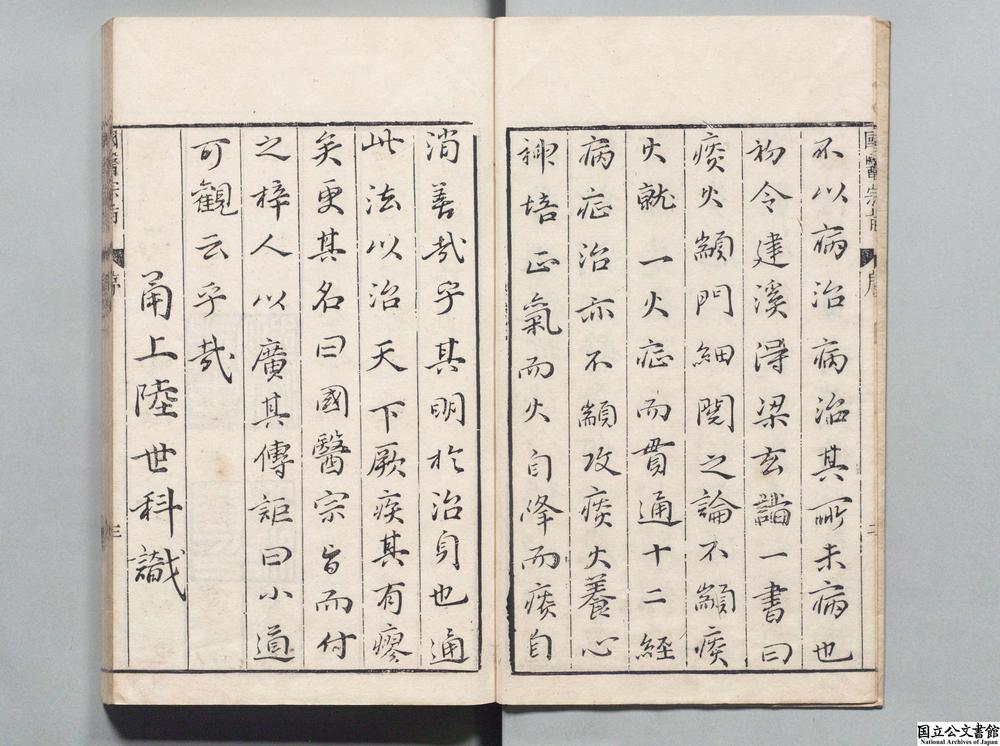 國醫宗旨 序 二
不以病治病治其所未病也
初令建溪淂梁玄諧一書曰
痰火顓門細閱之論不顓痰
火就一火症而貫通十二経
病症治亦不顓攻痰火養心
神培正氣而火自降而痰自
消善哉乎其明於治身也通
此法以治天下厥疾其有瘳
矣更其名曰國醫宗旨而付
之梓人以廣其傳詎曰小道
可觀云乎哉
甬上陸世科識
國醫宗旨 序 三
国立公文書館
National Archives of Japan